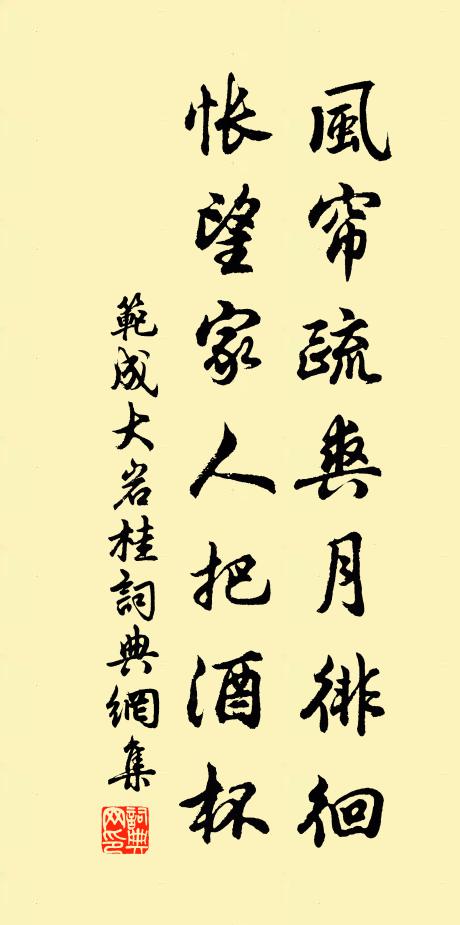 風帘疏爽月徘徊
悵望家人把酒杯
範成大岩桂詞典網集
詞典網印